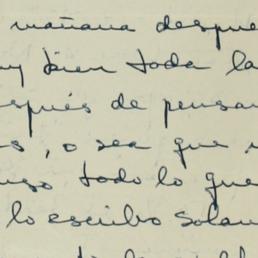 mañana despue
bien toda la
espués de pensar
s, o sea que
todo lo que
lo escribo solam